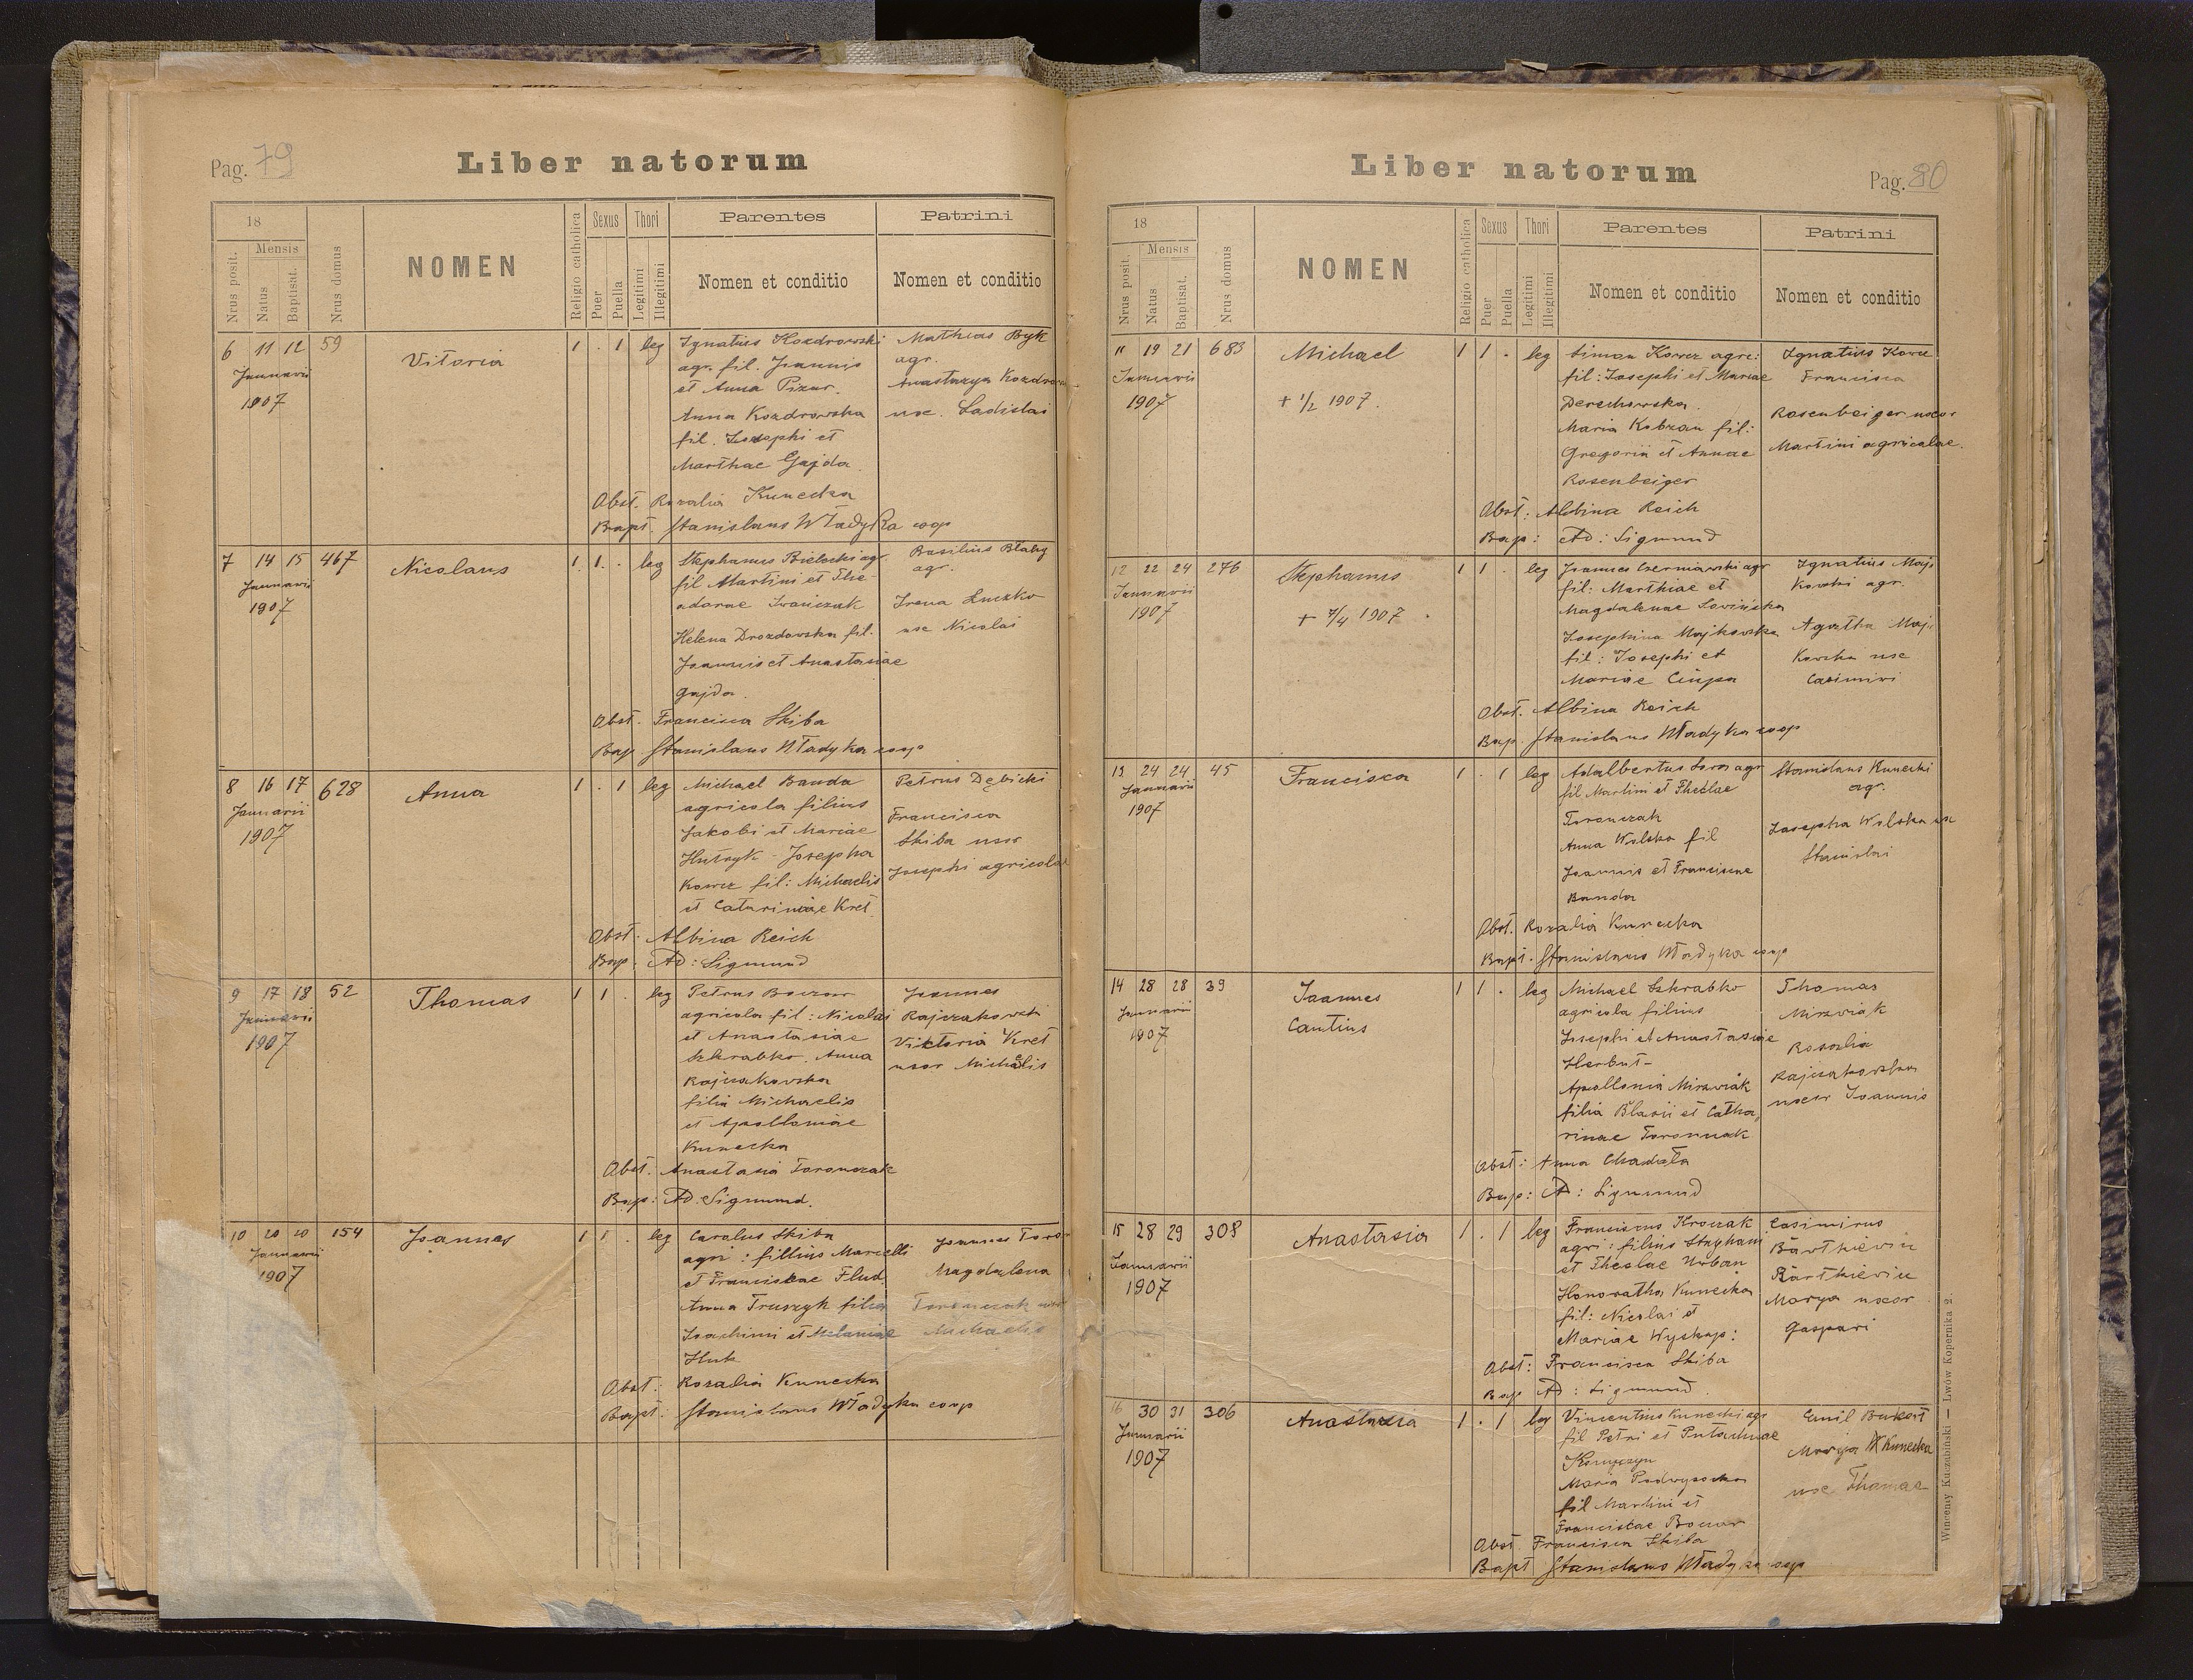 Pag. 79
Liber natorum
18
Nrus posit.
Mensis
Natus
Baptisat.
Nrus domus
NOMEN
Religio catholica
Sexus
Puer
Puella
Thori
Legitimi
Illegitimi
Parentes
Nomen et conditio
Patrini
Nomen et conditio
6 11 12 59
Januarii
1907
Vitoria
1 . 1 leg
Ignatius Kozdrowski
agr. fil. Joannis
et Anna Pizar.
Anna Kozdrowska
fil. Josephi et
Marthae Gajda.
Mathias Byk
agr.
Anastazya
uxc. Ladislai
Obst. Rozalia Kunecka
Bapt. Stanislaus Władyka coop
7 14 15 467
Januarii
1907
Nicolaus
1 1 . leg
Stephanus Bielecki agr.
fil Martini et The-
odorae Iwańczak
Helena Drozdowska fil.
Joannis et Anastasiae
Gajda.
Basilius Biały
agr.
Irena Łuczko
uxc Nicolai
Obst. Francisca Skiba
Bap. Stanislaus Władyka coop
8 16 17 628
Januarii
1907
Anna
1 . 1 leg
Michael Banda
agricola filius
Jakobi et Mariae
Hutnyk - Josepha
Kowcz fil: Michaelis
et Catarinae Kret
Petrus Dębicki
Francisca
Skiba uxor
Josephi agricolae
Obst: Albina Reich
Bap: Ad: Sigmund
9 17 18 52
Januarii
1907
Thomas
1 1 . leg
Petrus Boczar
agricola fil: Nicolai
et Anastasiae
Szkrabko. Anna
Rajczakowska
filia Michaelis
et Apolloniae
Kunecka
Joannes
Rajczakowski
Viktoria Kret
uxor Michaelis
Obst: Anastasia Toronczak
Bap: Ad: Sigmund.
10 20 20 154
Januarii
1907
Joannes
1 1 . leg
Carolus Skiba
agri: fillius Marcelli
et Franciscae Flud.
Anna Truszyk filia
Joachimi et Melaniae
Huk
Joannes
Magdalena
Toronczak
Michaelis
Obst: Rozalia Kunecka
Bapt: Stanislaus Władyka coop
Liber natorum
Pag. 80
18
Nrus posit.
Mensis
Natus
Baptisat.
Nrus domus
NOMEN
Religio catholica
Sexus
Puer
Puella
Thori
Legitimi
Illegitimi
Parentes
Nomen et conditio
Patrini
Nomen et conditio
11 19 21 683
Januarii
1907
Michael
+ 1/2 1907.
1 1 . leg
Simon Kowcz agri:
fil: Josephi et Mariae
Derechowska.
Maria Kobzan fil:
Gregorii et Annae
Rosenbeiger
Ignatius
Francisca
Rosenbeiger uxor
Martini agricolae.
Obst: Albina Reich
Bap: Ad: Sigmund
12 22 24 276
Januarii
1907
Stephanus
+ 7/4 1907
1 1 . leg
Joannes Czerniawski agr
fil: Marthiae et
Magdalenae Sowińska
Josephina Majkowska
fil: Josephi et
Mariae Ciupa
Ignatius Maj
kowski agr.
Agatha Maj
kowska uxc
Casimiri
Obst. Albina Reich
Bap. Stanislaus Władyka coop
13 24 24 45
Januarii
1907
Francisca
1 . 1 leg
Adalbertus agr
fil Martini et Theclae
Toronczak
Anna Wolska fil
Joannis et Franciscae
Banda
Stanislaus Kunecki
agr.
Josepha Wolska ux
Stanislai
Obst. Rozalia Kunecka
Bapt. Stanislaus Władyka coop
14 28 28 39
Januarii
1907
Joannes
Cantius
1 1 . leg
Michael Szkrabko
agricola filius
Josephi et Anastasiae
Herbut -
Apollonia Mizwiak
filia Blasii et Catha,
rinae Toronczak
Thomas
Mizwiak
Rosalia
Rajczakowska
uxor Joannis
Obst: Anna Chadała
Bap: Ad: Sigmund
15 28 29 308
Januarii
1907
Anastasia
1 . 1 leg
Franciscus Kroczak
agri: filius Stephani
et Theclae Urban
Honoratha Kunecka
fil: Nicolai et
Mariae Wyskop:
Casimirus
Bartkiewicz
Bartkiewicz
Marya uxor
Gaspari
Obst: Francisca Skiba
Bap Ad: Sigmund.
16 30 31 306
Januarii
1907
Anastasia
1 . 1 leg
Vincentius Kunecki agr
fil Petri et
Maria Podwysocka
fil Martini et
Franciscae Boczar
Emil
Marya Kunecka
uxc Thomae
Obst. Francisca Skiba
Bapt Stanislaus Władyka coop
Wincenty Kuczabiński — Lwów Kopernika 2.